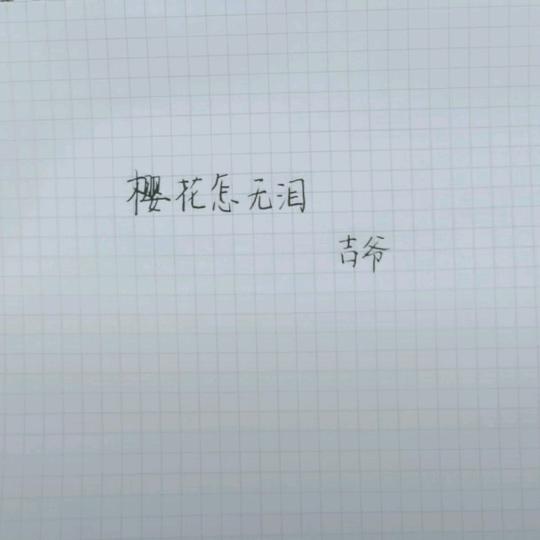 樱花怎无泪
吉爷